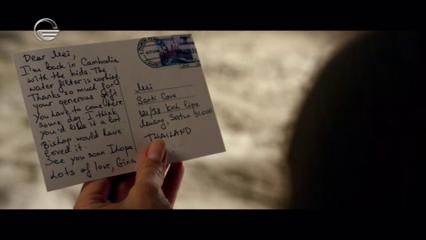 Dear Mei,
I'm back in Cambodia
with the kids. The
water filter is working
Thanks so much for
your generous gift
You have to come here
some day. I think
you'd like it a lot
Bishop would have
loved it.
See you soon I hope
Lots of love, Gina
Mei
Santi Cove
Koh Lipe
THAILAND